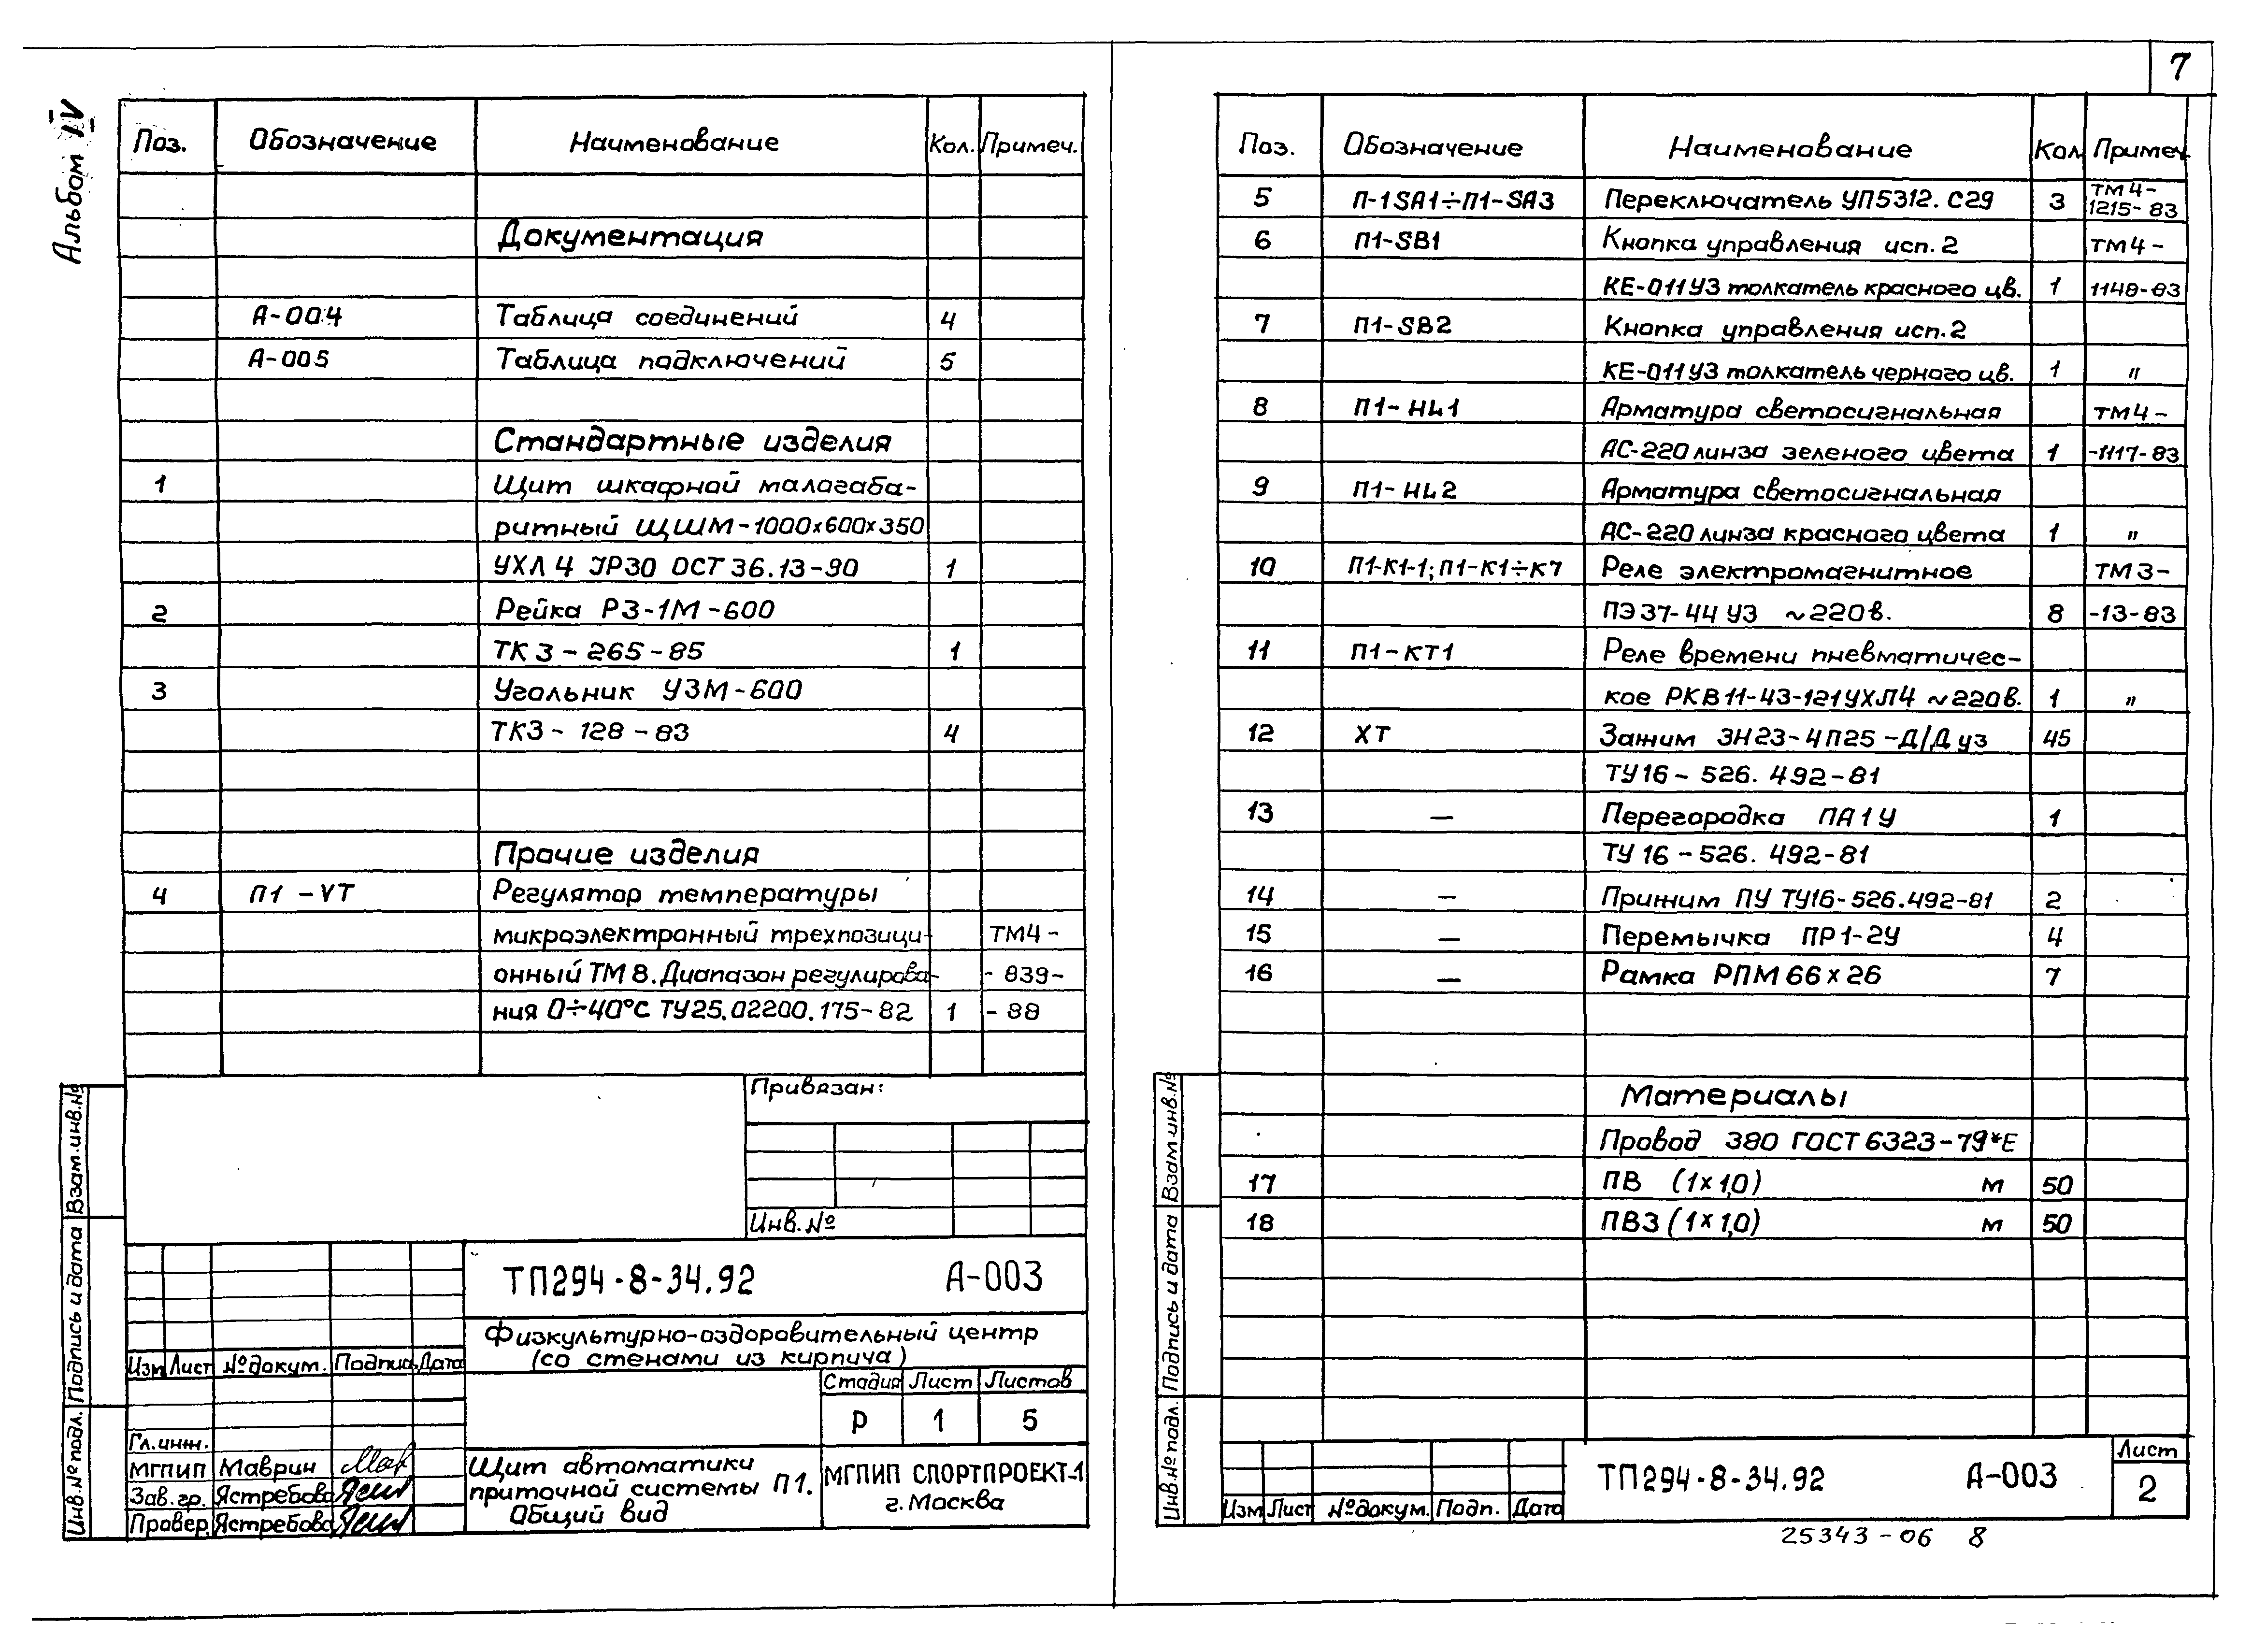 7
Альбом IV
Поз. Обозначение Наименование Кол. Примеч.
Документация
А-004 Таблица соединений 4
А-005 Таблица подключений 5
Стандартные изделия
1 Щит шкафной малогаба-
ритный ЩШМ-1000х600х350
УХЛ 4 IP30 ОСТ 36.13-90 1
2 Рейка РЗ-1М-600
ТКЗ-265-85 1
3 Угольник УЗМ-600
ТКЗ-128-83 4
Прочие изделия
4 П1-VT Регулятор температуры
микроэлектронный трехпозици- ТМ4-
онный ТМ8. Диапазон регулирова- -839-
ния 0÷40°С ТУ25.02200.175-82 1 -88
Привязан:
Инв.№
ТП294-8-34.92 А-003
Физкультурно-оздоровительный центр
(со стенами из кирпича)
Изм Лист №докум. Подпись Дата
Стадия Лист Листов
Р 1 5
Гл.инж.
МГПИП Маврин
Зав.гр. Ястребова
Провер. Ястребова
Щит автоматики
приточной системы П1.
Общий вид
МГПИП СПОРТПРОЕКТ-1
г.Москва
Взам.инв.№
Подпись и дата
Инв.№ подл.
Поз. Обозначение Наименование Кол Примеч.
5 П-1SA1÷П1-SA3 Переключатель УП5312.С29 3 ТМ4-
1215-83
6 П1-SB1 Кнопка управления исп.2 ТМ4-
КЕ-011У3 толкатель красного цв. 1 1148-83
7 П1-SB2 Кнопка управления исп.2
КЕ-011У3 толкатель черного цв. 1 "
8 П1-HL1 Арматура светосигнальная ТМ4-
АС-220 линза зеленого цвета 1 -1117-83
9 П1-HL2 Арматура светосигнальная
АС-220 линза красного цвета 1 "
10 П1-К1-1; П1-К1÷К7 Реле электромагнитное ТМ3-
ПЭ37-44 У3 ~220в. 8 -13-83
11 П1-КТ1 Реле времени пневматичес-
кое РКВ11-43-121УХЛ4 ~220в. 1 "
12 ХТ Зажим ЗН23-4П25-Д/Д уз 45
ТУ16-526.492-81
13 — Перегородка ПА1У 1
ТУ16-526.492-81
14 — Прижим ПУ ТУ16-526.492-81 2
15 — Перемычка ПР1-2У 4
16 — Рамка РПМ 66х26 7
Материалы
Провод 380 ГОСТ 6323-79*Е
17 ПВ (1х1,0) м 50
18 ПВ3 (1х1,0) м 50
Взам.инв.№
Подпись и дата
Инв.№ подл.
Изм Лист №докум. Подп. Дата
ТП294-8-34.92 А-003
Лист
2
25343-06 8